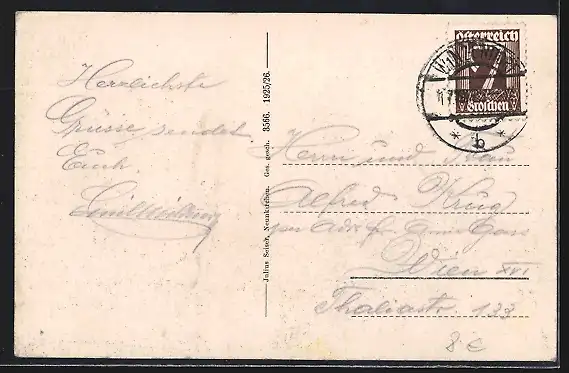 Herzlichste
Grüsse sendet
Euch
Julius Seiser, Neunkirchen. Ges. gesch. 3566. 1925/26.
Österreich
7
Groschen
* b *
Herrn und Frau
Alfred Krug
Wien XVI
Thaliastr. 133
8 €